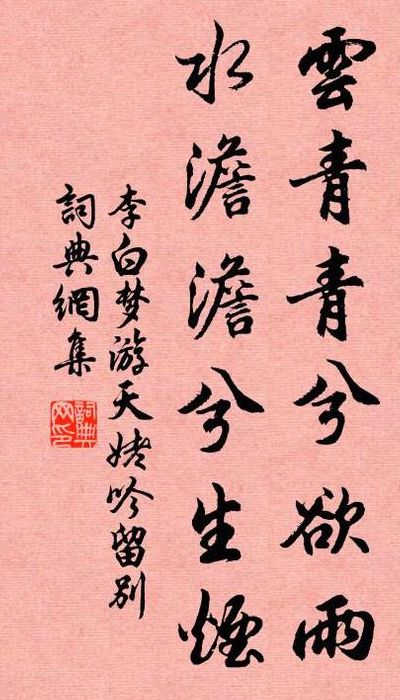 雲青青兮欲雨
水澹澹兮生煙
李白梦游天姥吟留别
詞典網集
詞典網印